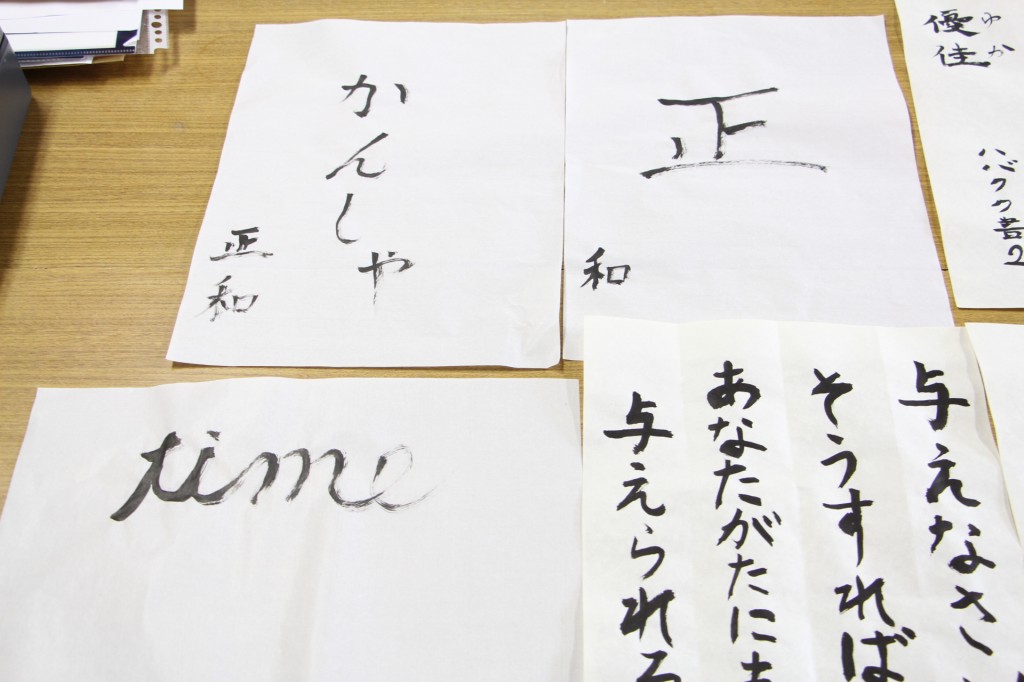 かんしゃ
正和
正
和
time
ゆか
優佳
ハバクク書2
与えなさ
そうすれば
あなたがたに
与えられる